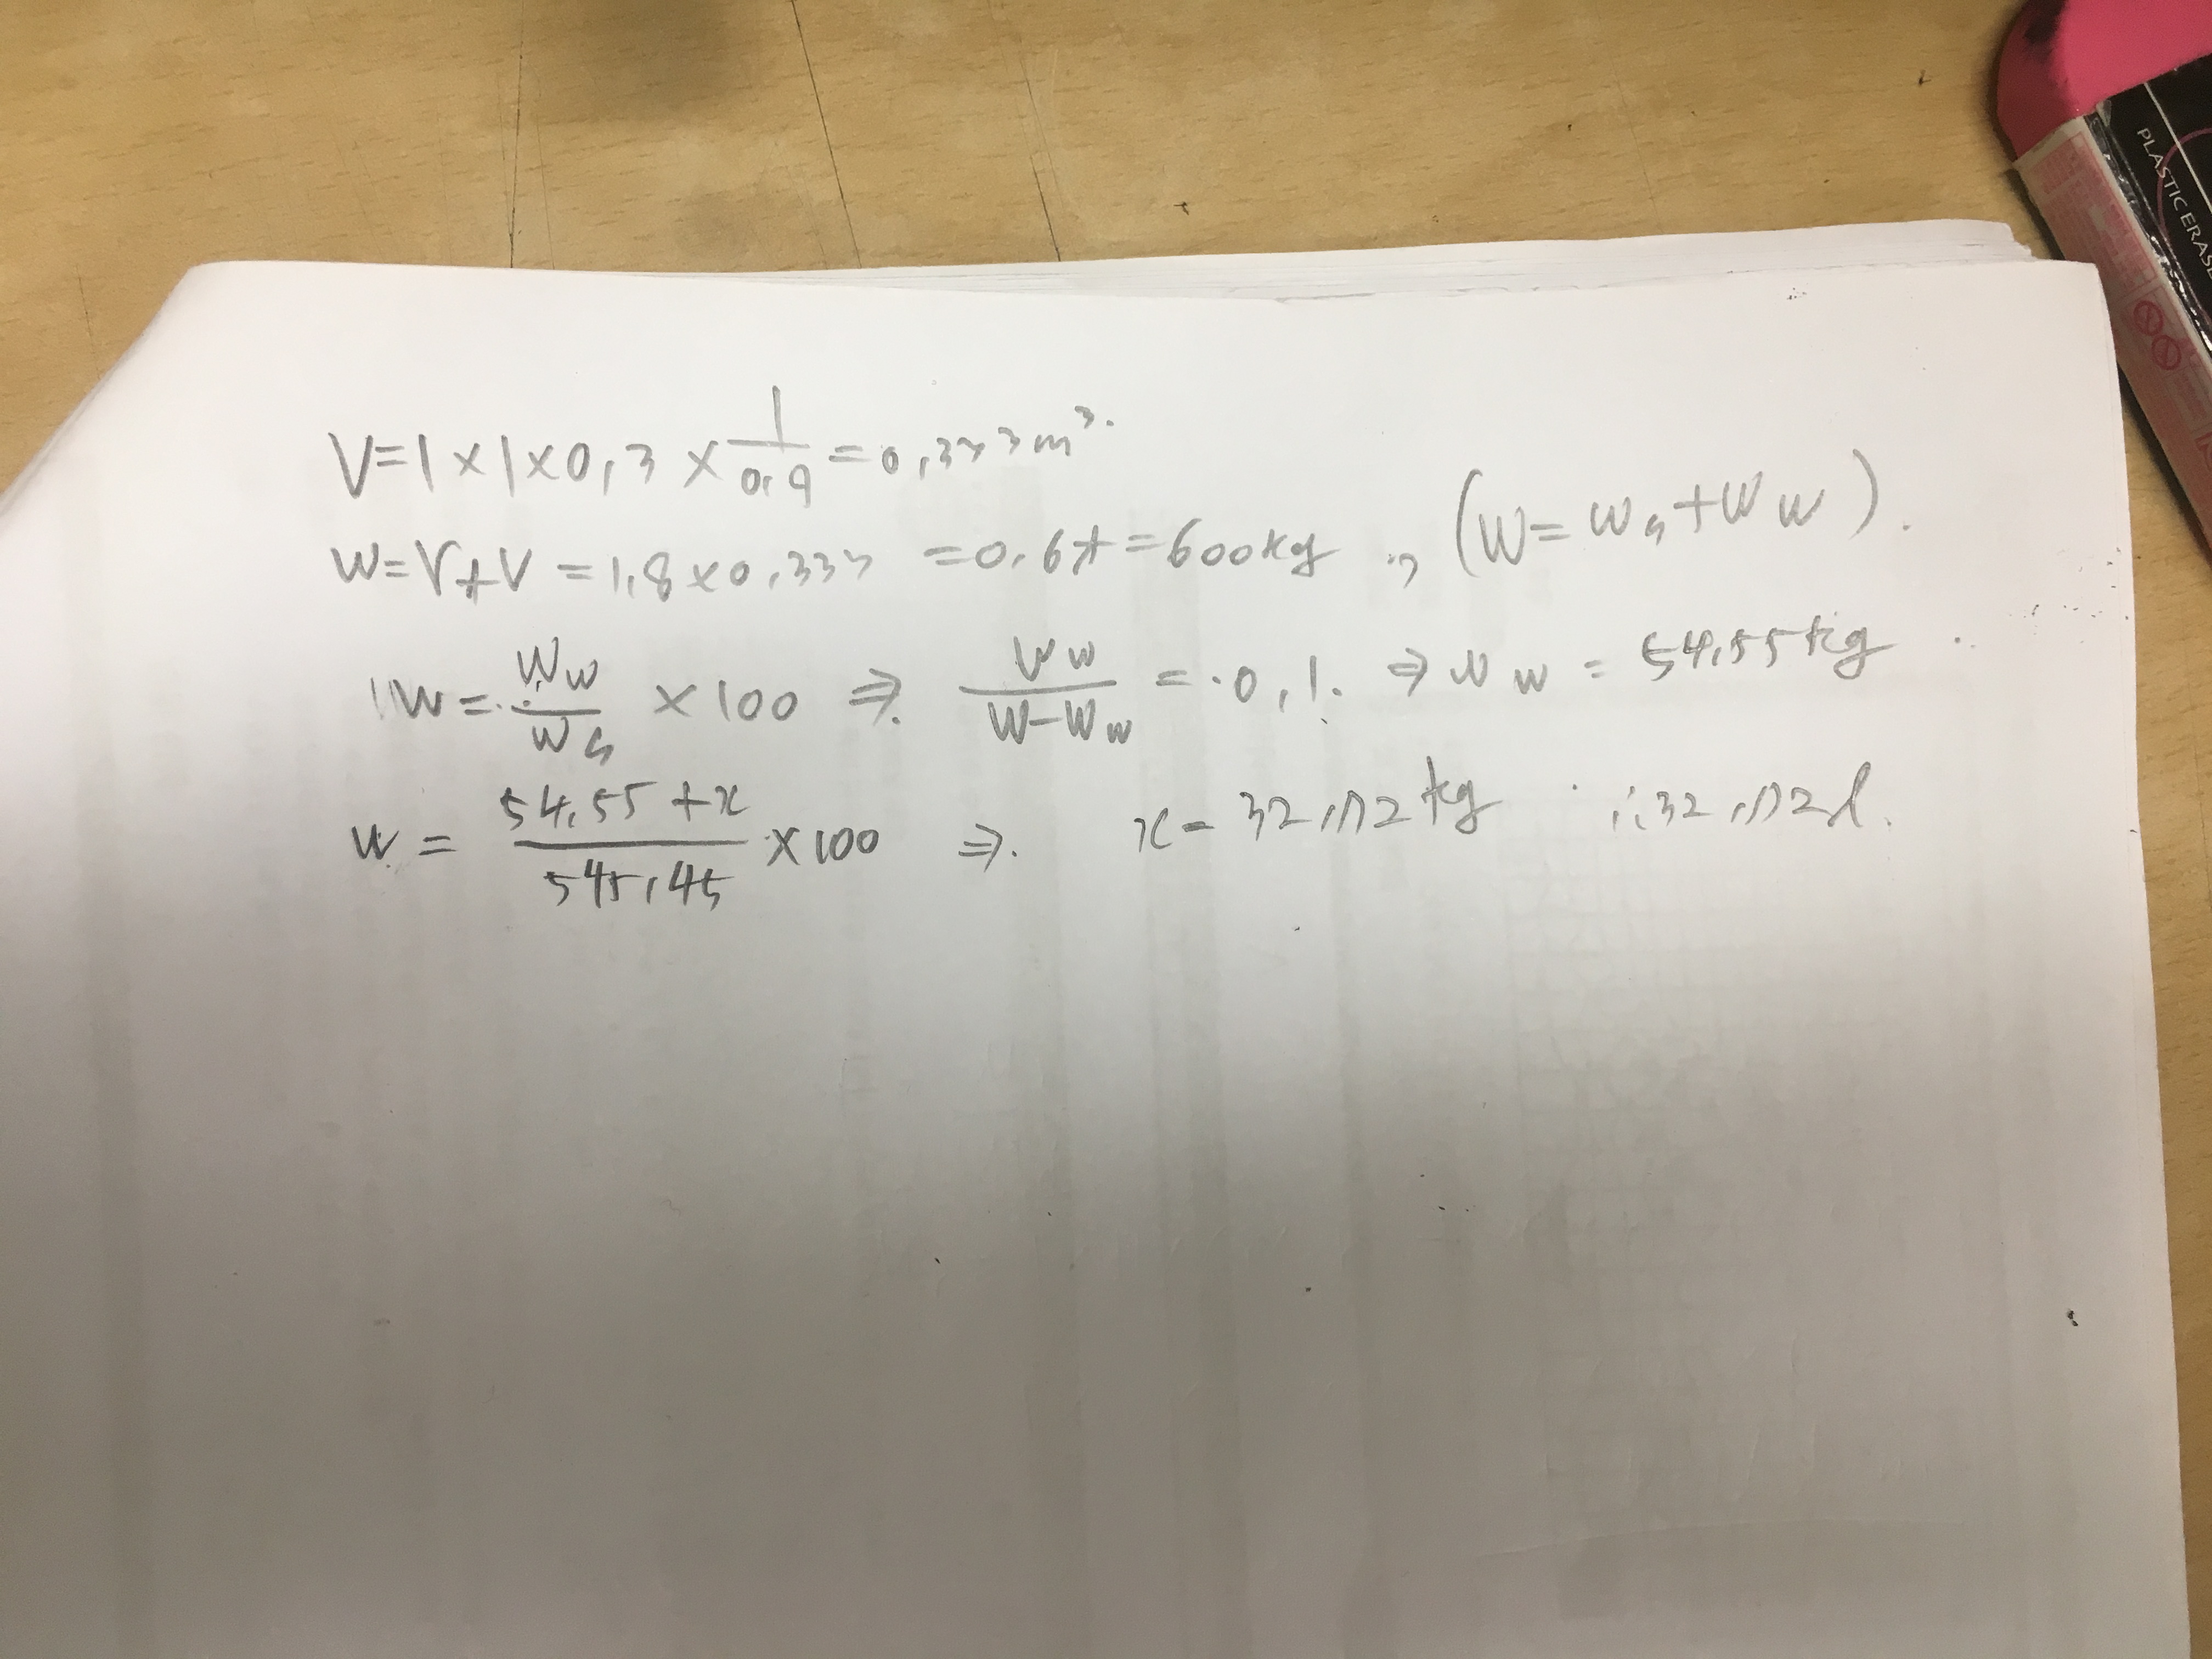 PLASTIC ERAS
V=1×1×0.3×1/0.9=0.333m³.
W=γtV=1.8×0.333=0.6t=600kg, (W=Ws+Ww).
W=Ww/Ws×100 ⇒ Ww/W-Ww=0.1. ⇒ Ww=54.55kg
w=54.55+x/545.45×100 ⇒ x=32.72kg ∴32.72l.